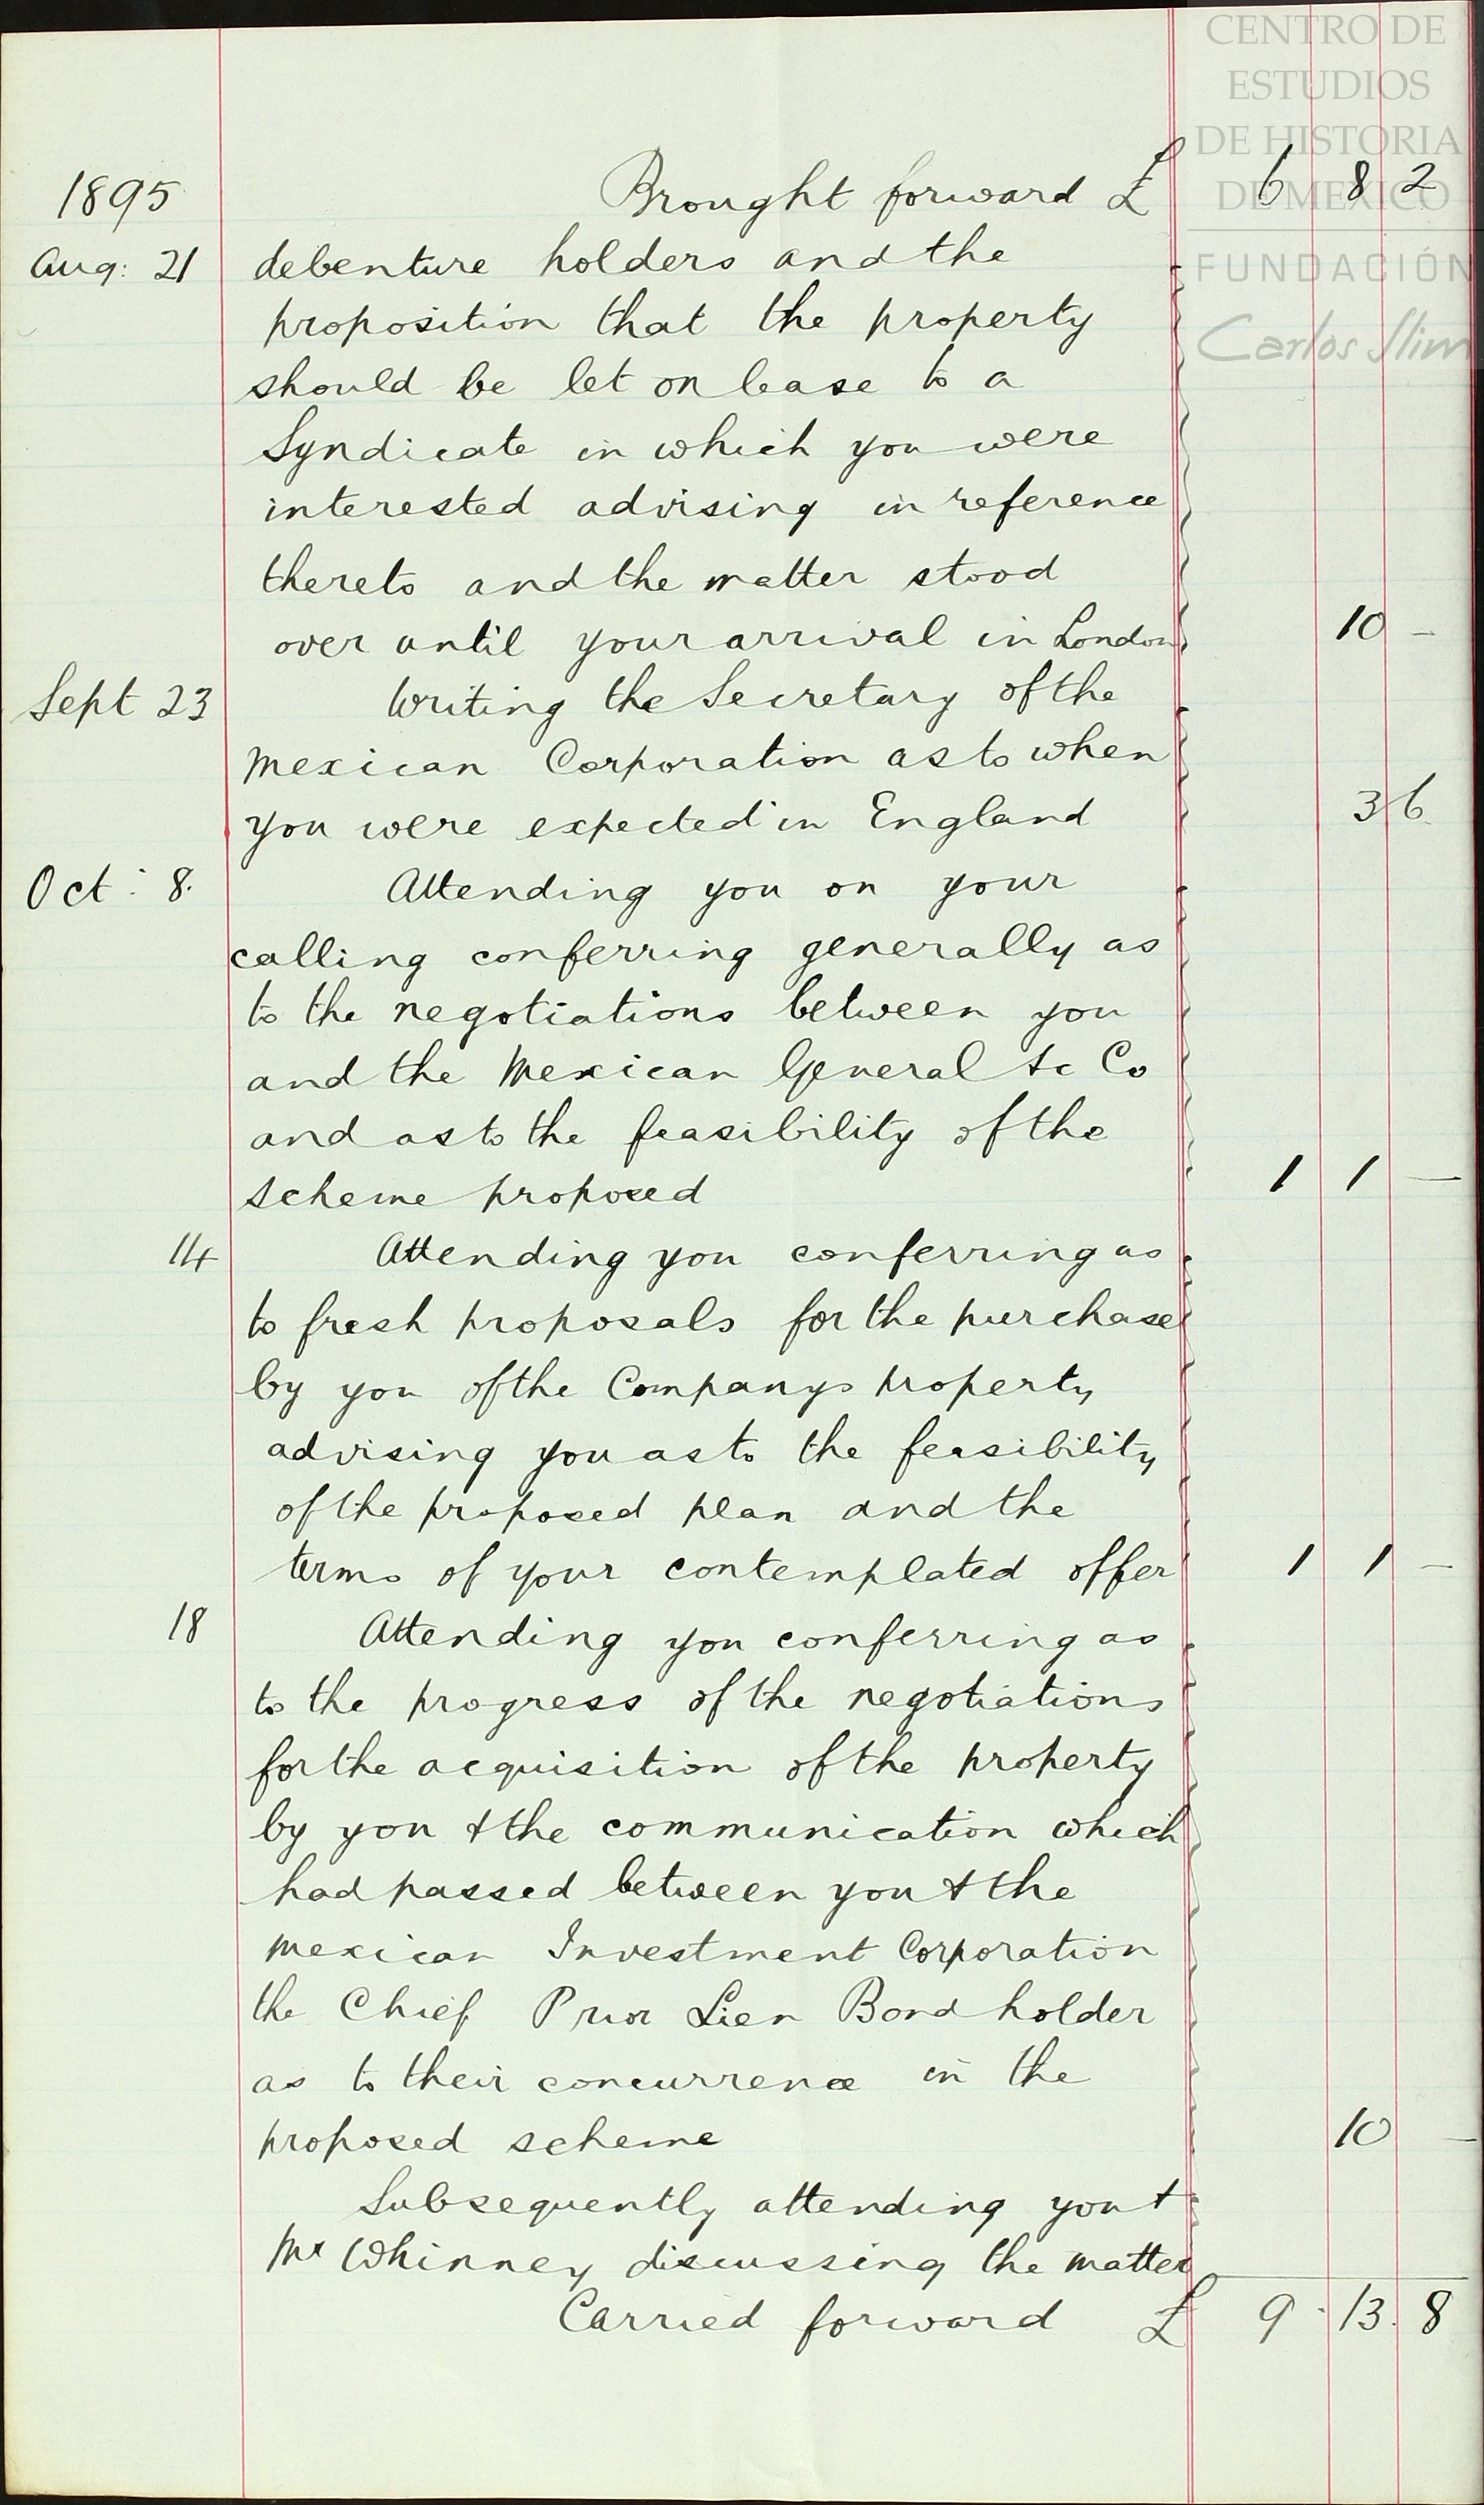 CENTRO DE
ESTUDIOS
DE HISTORIA
DE MEXICO
FUNDACIÓN
Carlos Slim
1895 Brought forward £ 6 8 2
Aug: 21 debenture holders and the
proposition that the property
should be let on lease to a
Syndicate in which you were
interested advising in reference
thereto and the matter stood
over until your arrival in London 10 –
Sept 23 Writing the Secretary of the
Mexican Corporation as to when
you were expected in England 3 6
Oct: 8. Attending you on your
calling conferring generally as
to the negotiations between you
and the Mexican General &c Co
and as to the feasibility of the
scheme proposed 1 1 –
14 Attending you conferring as
to fresh proposals for the purchase
by you of the Companys property
advising you as to the feasibility
of the proposed plan and the
terms of your contemplated offer 1 1 –
18 Attending you conferring as
to the progress of the negotiations
for the acquisition of the property
by you & the communication which
had passed between you & the
Mexican Investment Corporation
the Chief Prior Lien Bond holder
as to their concurrence in the
proposed scheme 10 –
Subsequently attending you &
Mr Whinney discussing the matter
Carried forward £ 9 . 13 . 8